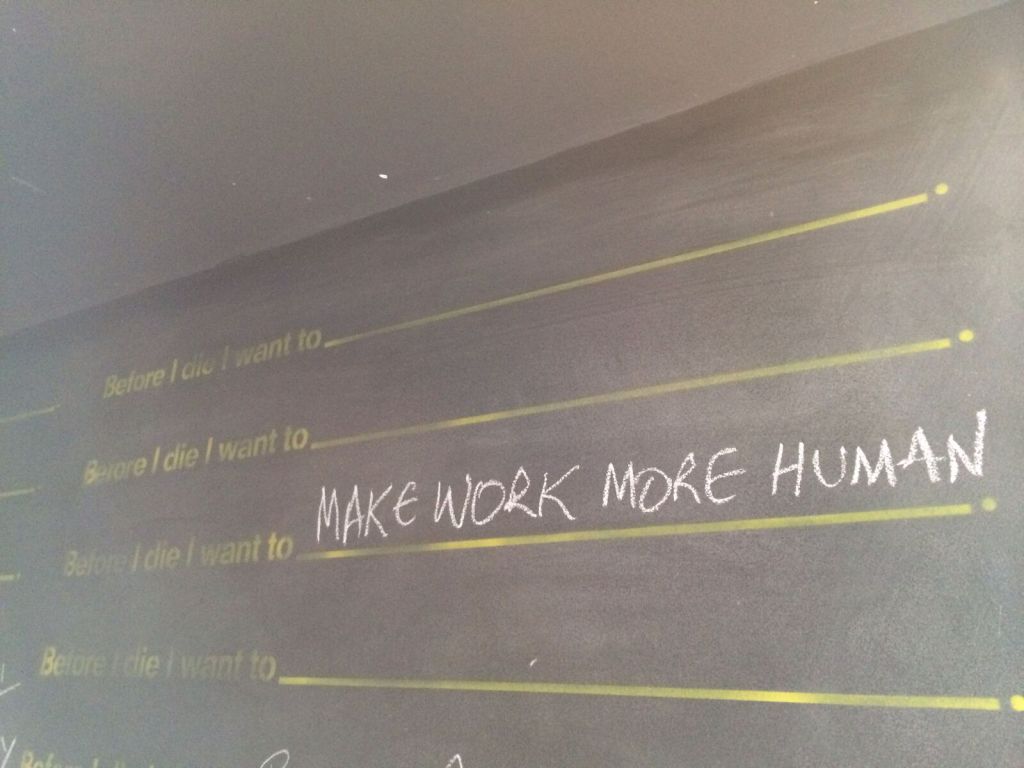 Before I die I want to
Before I die I want to
Before I die I want to MAKE WORK MORE HUMAN
Before I die I want to
Before I